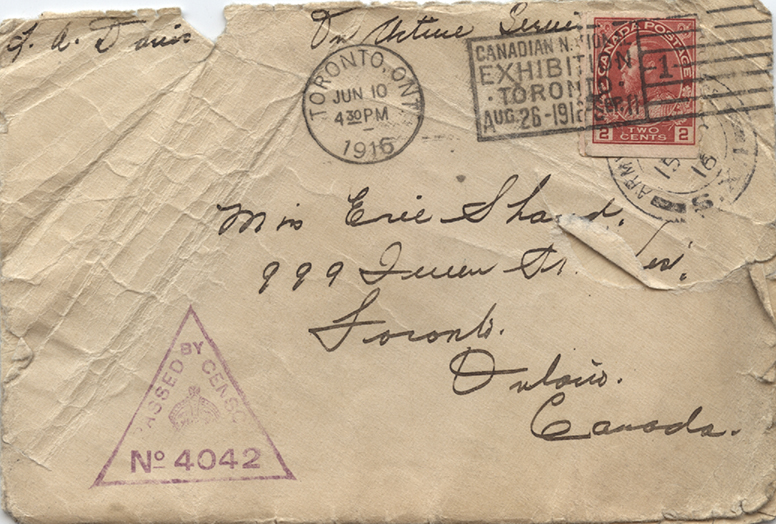 L. A. Davis
On Active Service
TORONTO, ONT.
JUN 10
4 30 PM
1916
CANADIAN NATION
EXHIBITION
TORONTO.
AUG. 26 - 1916 SEP. 11
1
CANADA POSTAGE
2 TWO CENTS 2
ARM
15
16
Miss Evie Sha d.
999 Queen St. W.
Toronto.
Ontario.
Canada.
PASSED BY CENSO
No 4042